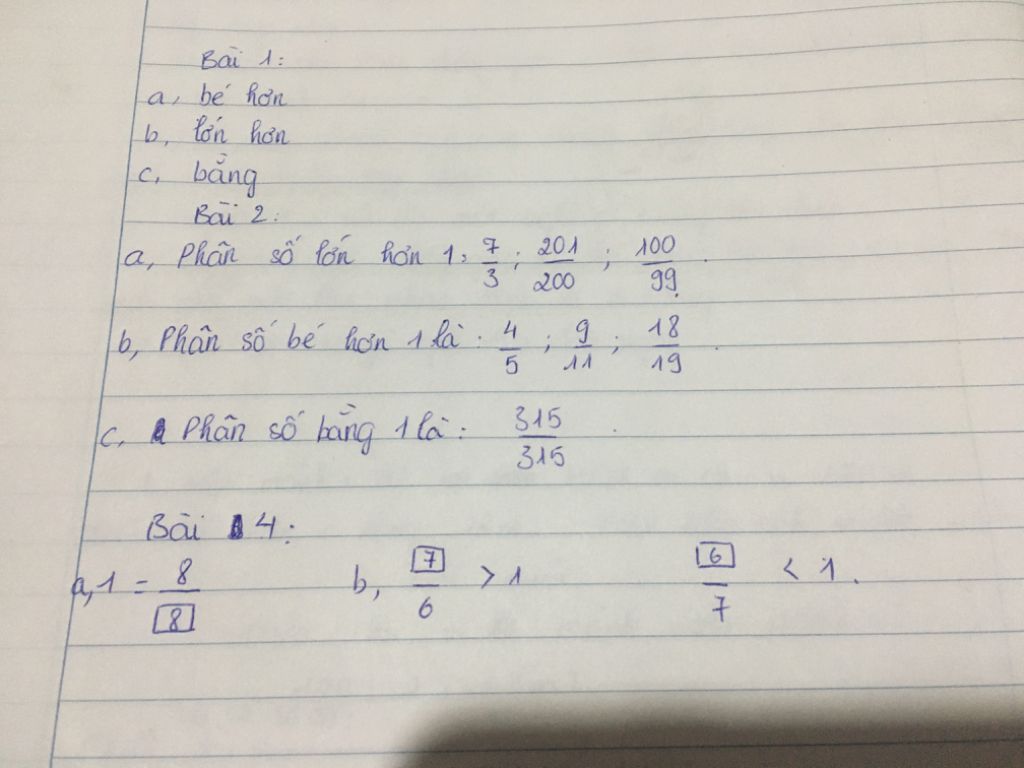 Bài 1:
a, bé hơn
b, lớn hơn
c, bằng
Bài 2:
a, Phân số lớn hơn 1: 7/3 ; 201/200 ; 100/99.
b, Phân số bé hơn 1 là: 4/5 ; 9/11 ; 18/19.
c, Phân số bằng 1 là: 315/315.
Bài 4:
a, 1 = 8/8 b, 7/6 > 1 6/7 < 1.